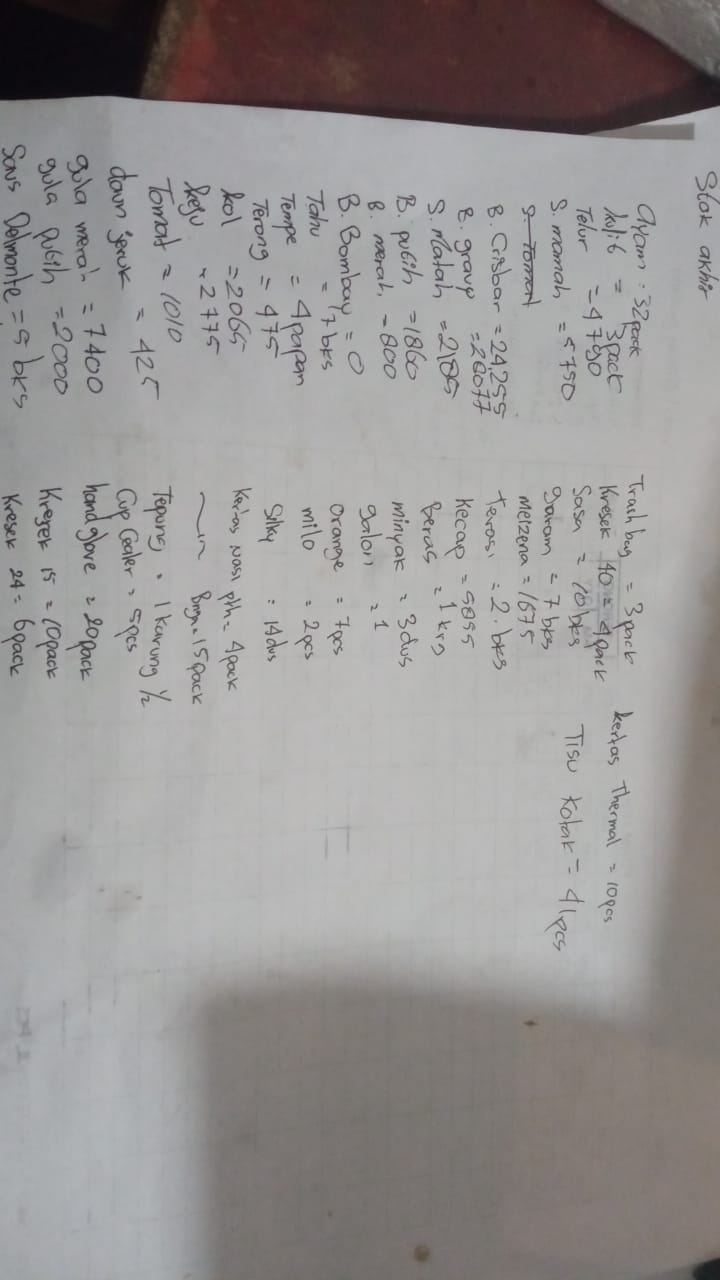 Stok akhir
Ayam : 32pack
kulit = 3pack
Telur = 4790
S. mamah = 5750
S. Tomat
B. Crisbar = 24,255
B. gravy = 28077
S. Matah = 2185
B. putih = 1860
B. merah = 800
B. Bombay = 0
Tahu = 7 bks
Tempe = 4 papan
Terong = 475
kol = 2065
keju = 2775
Tomat = 1010
daun jeruk = 425
gula merah = 7400
gula putih = 2000
Saus Delmonte = 5 bks
Trash bag = 3 pack
Kresek 40 = 4 pack
Sasa = 10 bks
garam = 7 bks
meizena = 1675
terasi = 2. bks
Kecap = 5895
Beras = 1 krg
minyak = 3 dus
galon = 1
orange = 7 pcs
milo = 2 pcs
Silky = 14 dus
Kertas nasi pth = 4 pack
= 15 pack
Tepung = 1 karung 1/2
Cup Sealer = 5 pcs
hand glove = 20 pack
Kresek 15 = 10 pack
Kresek 24 = 6 pack
kertas thermal = 10 pcs
Tisu kotak = 41 pcs